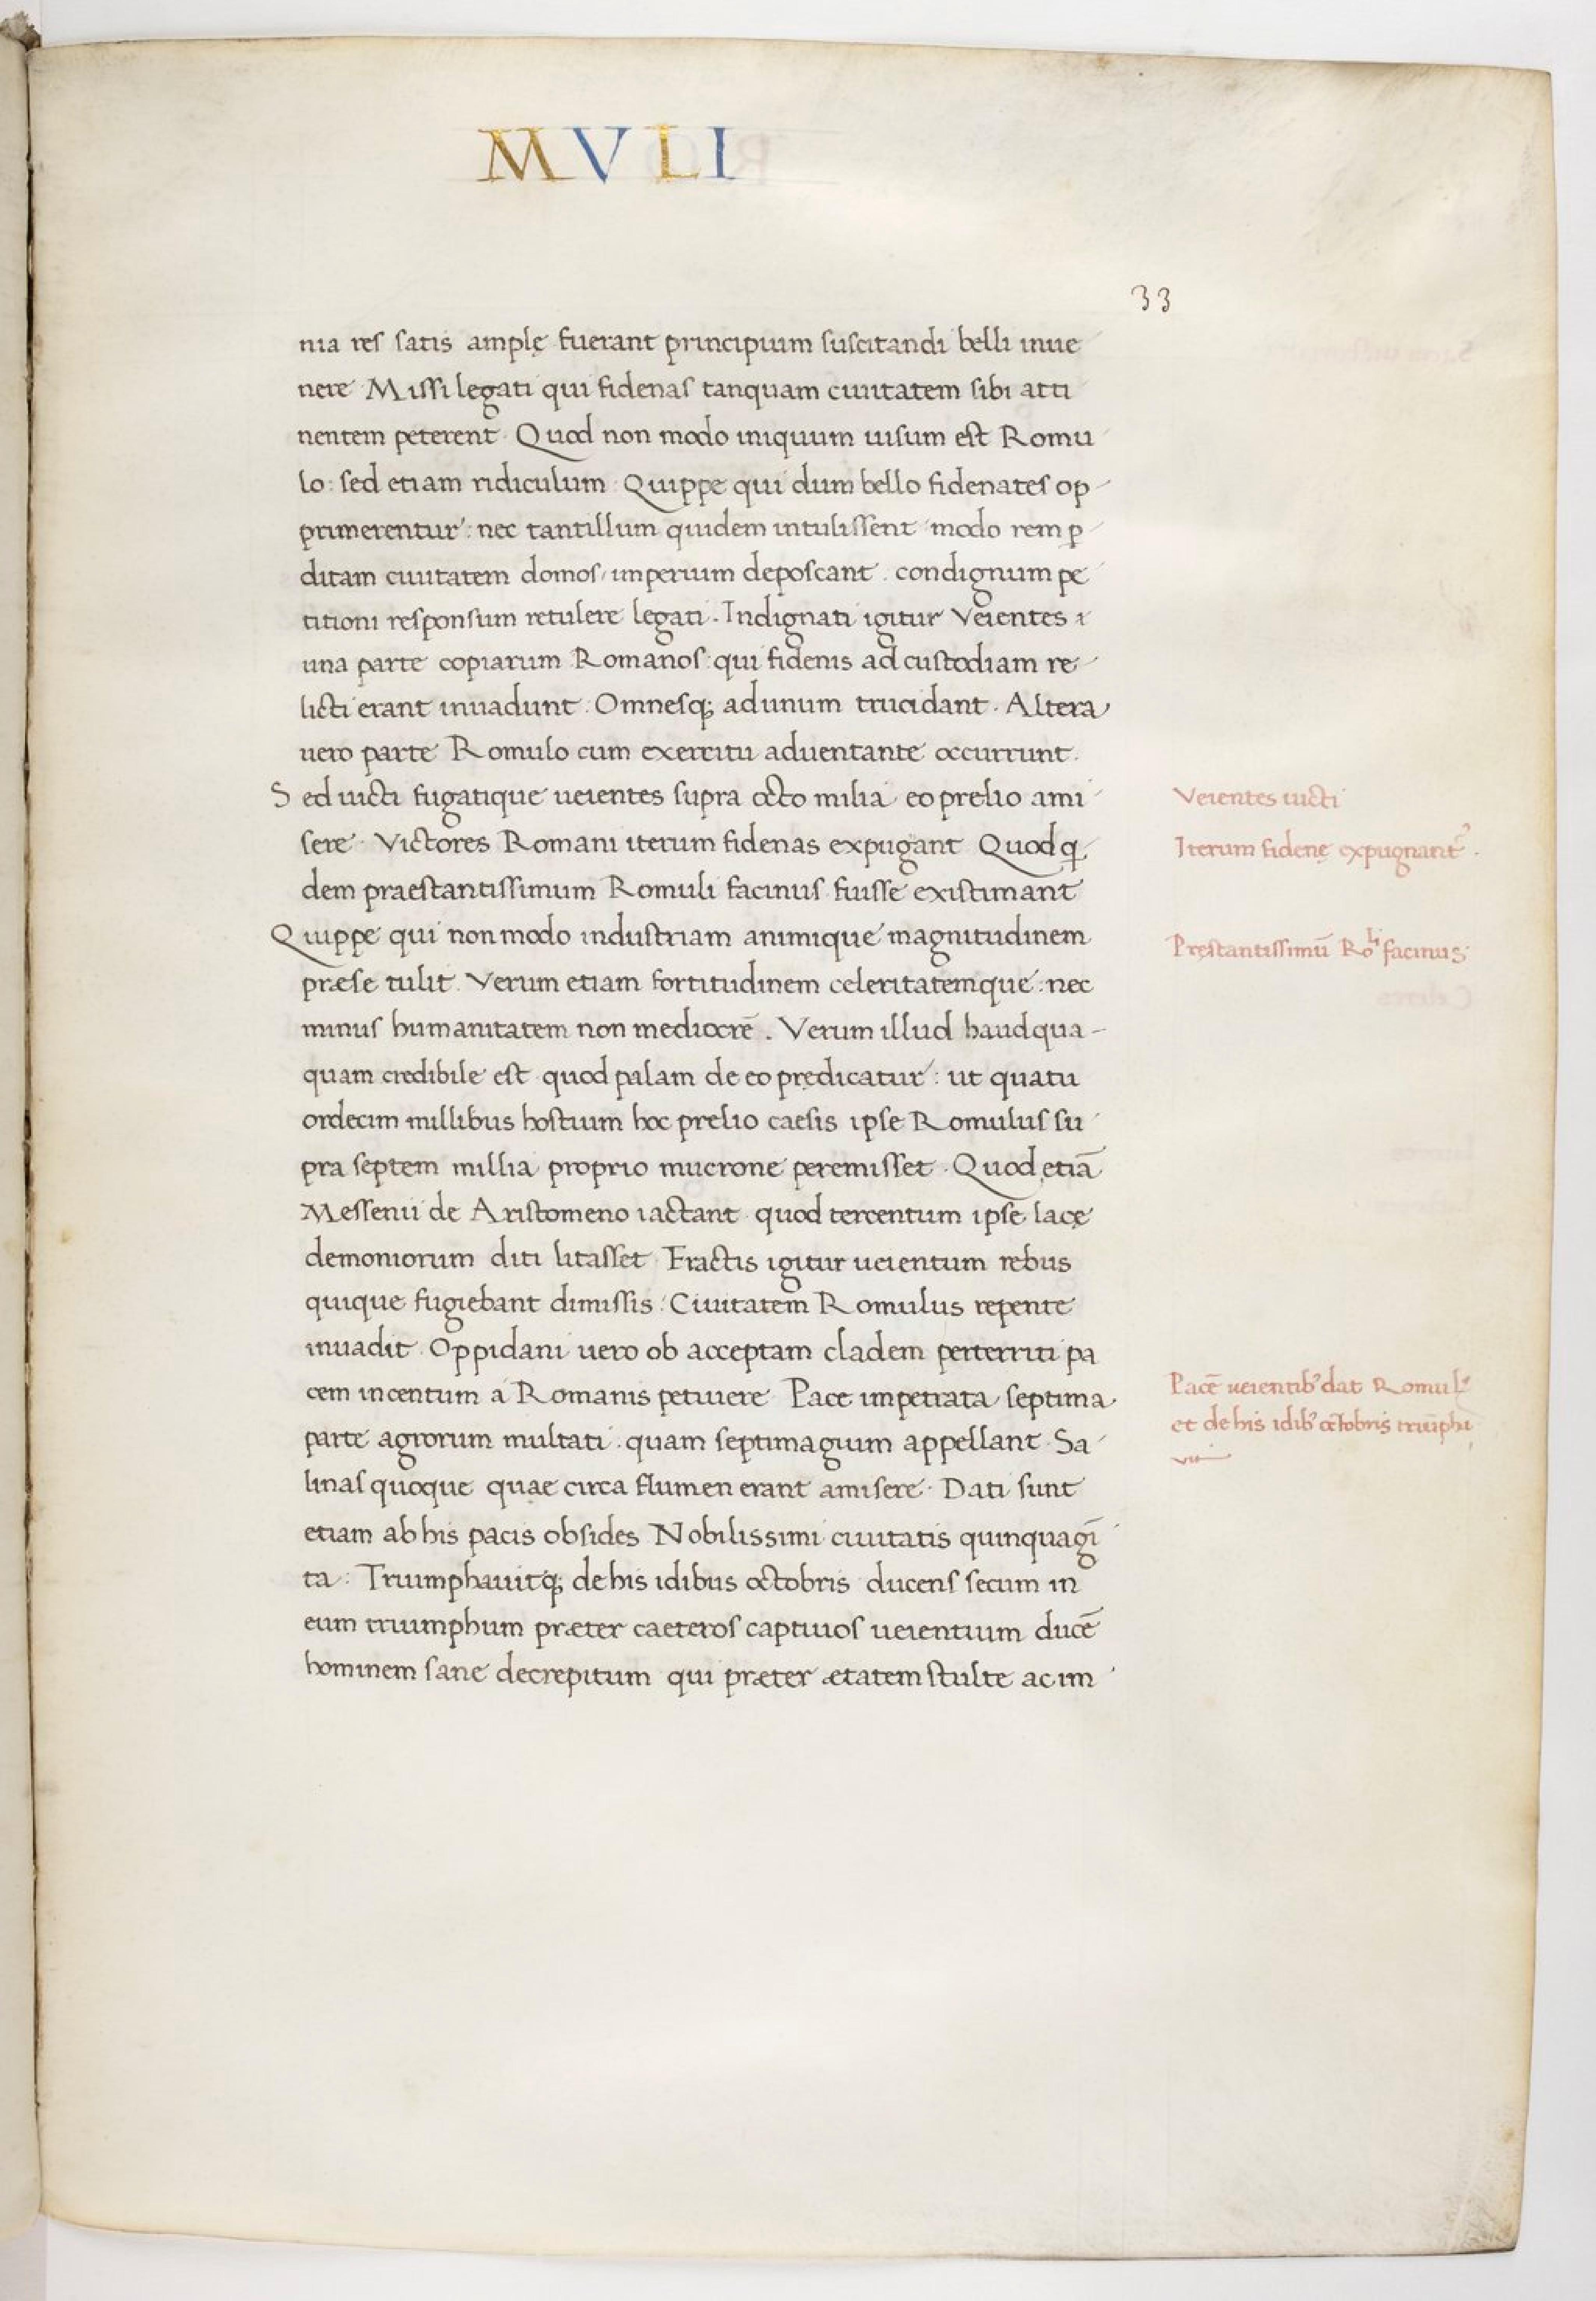 MVLI
33
nia res satis ample fuerant principium suscitandi belli inue
nere Missi legati qui fidenas tanquam ciuitatem sibi atti
nentem peterent Quod non modo iniquum uisum est Romu
lo: sed etiam ridiculum Quippe qui dum bello fidenates op
primerentur: nec tantillum quidem intulissent modo rem p̱
ditam ciuitatem domos/ imperium deposcant. condignum pe
titioni responsum retulere legati. Indignati igitur Veientes i
una parte copiarum Romanos: qui fidenis ad custodiam re
licti erant inuadunt: Omnesq; ad unum trucidant. Altera
uero parte Romulo cum exercitu aduentante occurrunt.
Sed uicti fugatique ueientes supra octo milia eo prelio ami
sere. Victores Romani iterum fidenas expugant Quod q
dem praestantissimum Romuli facinus fuisse existimant
Quippe qui non modo industriam animique magnitudinem
præse tulit. Verum etiam fortitudinem celeritatemque: nec
minus humanitatem non mediocrē. Verum illud haudqua-
quam credibile est quod palam de eo prędicatur: ut quatu
ordecim millibus hostium hoc prelio caesis ipse Romulus su
pra septem millia proprio mucrone peremisset. Quod etiā
Messenii de Aristomeno iactant quod tercentum ipse lacę
demoniorum diti litasset Fractis igitur ueientum rebus
quique fugiebant dimissis: Ciuitatem Romulus repente
inuadit Oppidani uero ob acceptam cladem perterriti pa
cem in centum a Romanis petiuere Pace impetrata septima
parte agrorum multati. quam septimagium appellant. Sa
linas quoque quae circa flumen erant amisere. Dati sunt
etiam ab his pacis obsides Nobilissimi ciuitatis quinquagī
ta: Triumphauitq; de his idibus octobris ducens secum in
eum triumphum præter caeteros captiuos ueientium ducē
hominem sane decrepitum qui præter ætatem stulte ac im
Veientes uicti
Iterum fidenę expugnant᷑.
Pręstantissimū Roˡⁱ facinus.
Pacē ueientib᾽ dat Romul᾽
et de his idib᾽ octobris triūpha
uit